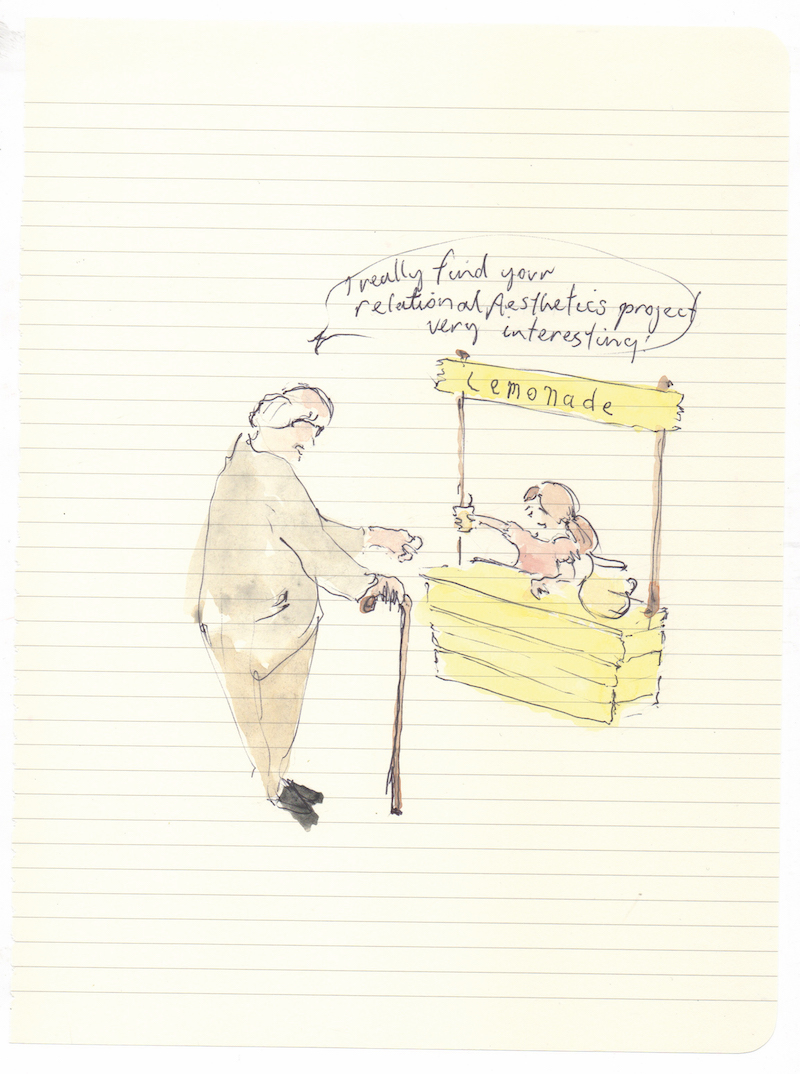 I really find your
relational Aesthetics project
very interesting!
Lemonade